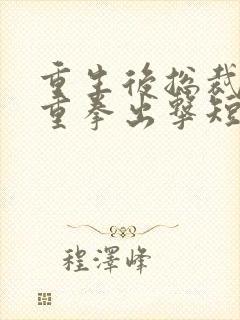 重生後總裁
重拳出擊短
程澤峰